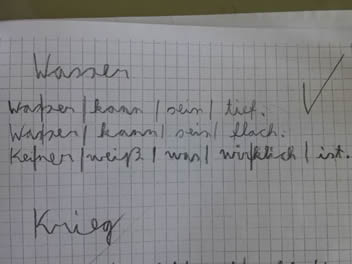 Wasser
Wasser | kann | sein | tief.
Wasser | kann | sein | flach.
Keiner | weiß | was | wirklich | ist.
Krieg